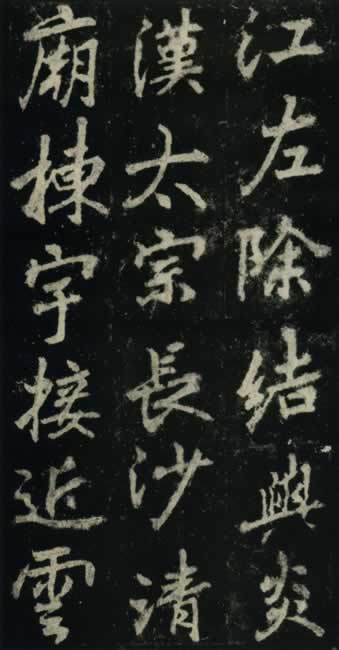 江左除結與炎
漢太宗長沙清
廟棟宇接近雲